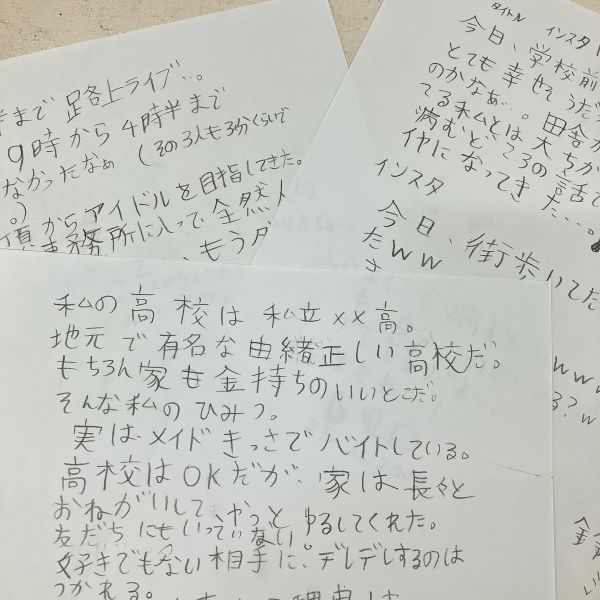 まで 足各上ライブ…。
9時から4時半まで
なかったなぁ (その3人も3分くらいで
頃からアイドルを目指してきた。
事務所に入って全然人
、もうダ
タイトル インスタ
今日、学校前
とても幸せそうだ
のかなぁ…。田舎
てる私とは大ちが
病むどころの話で
イヤになってきた…。
インスタ
今日、街歩いてた
たww
ww
る?w
私の高校は私立××高。
地元で有名な由緒正しい高校だ。
もちろん家も金持ちのいいとこだ。
そんな私のひみつ。
実はメイドきっさでバイトしている。
高校はOKだが、家は長々と
おねがいして、やっとゆるしてくれた。
友だちにもいっていない。
好きでもない相手に、デレデレするのは
つかれる。